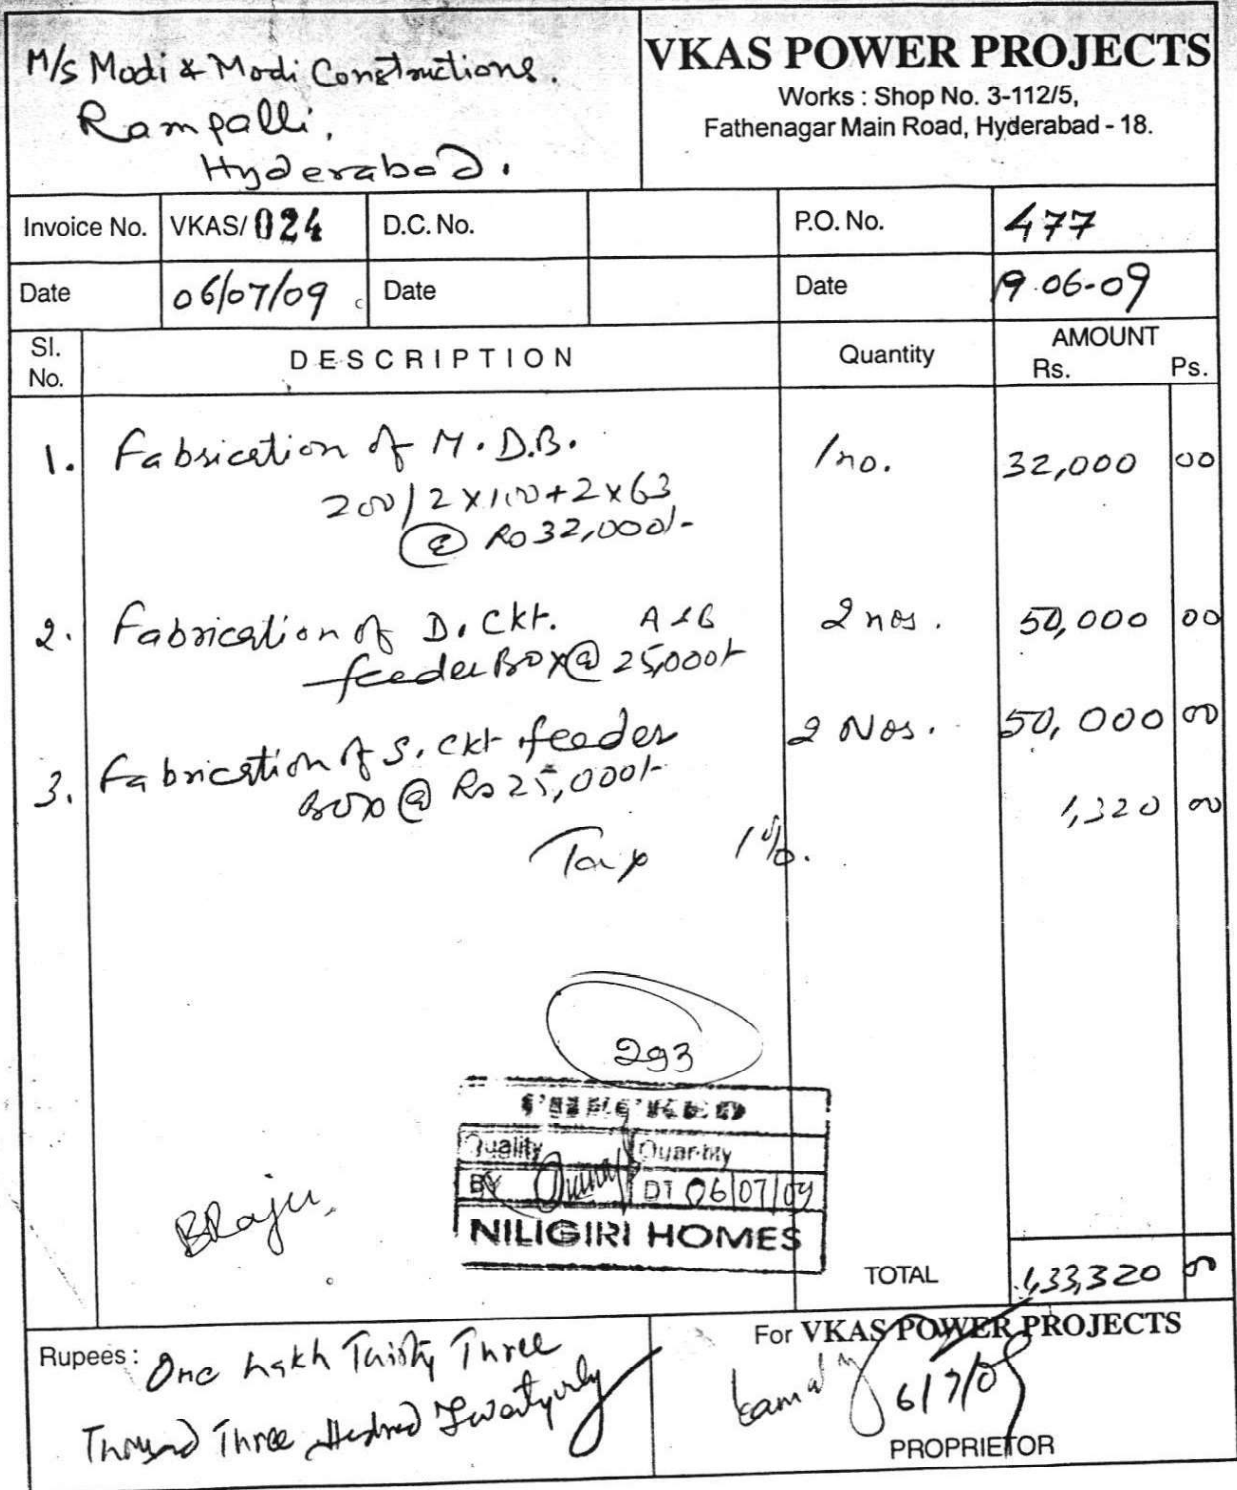 M/s Modi & Modi Constructions.
Rampalli,
Hyderabad.
VKAS POWER PROJECTS
Works : Shop No. 3-112/5,
Fathenagar Main Road, Hyderabad - 18.
Invoice No. VKAS/ 024 D.C. No. P.O. No. 477
Date 06/07/09 Date Date 19.06-09
Sl. No. DESCRIPTION Quantity AMOUNT Rs. Ps.
1. Fabrication of M.D.B. 1no. 32,000 00
200/2x100+2x63
@ Rs 32,000/-
2. Fabrication of D.Ckt. A&B 2 nos. 50,000 00
feeder Box @ 25,000/-
3. Fabrication of S.Ckt feeder 2 Nos. 50,000 00
Box @ Rs 25,000/-
Tax 1%. 1,320 00
293
CHECKED
Quality Quantity
BY DT 06/07/09
NILIGIRI HOMES
BRaju
TOTAL 1,33,320 00
Rupees : One Lakh Thirty Three
Thousand Three Hundred Twenty only
For VKAS POWER PROJECTS
6/7/09
PROPRIETOR